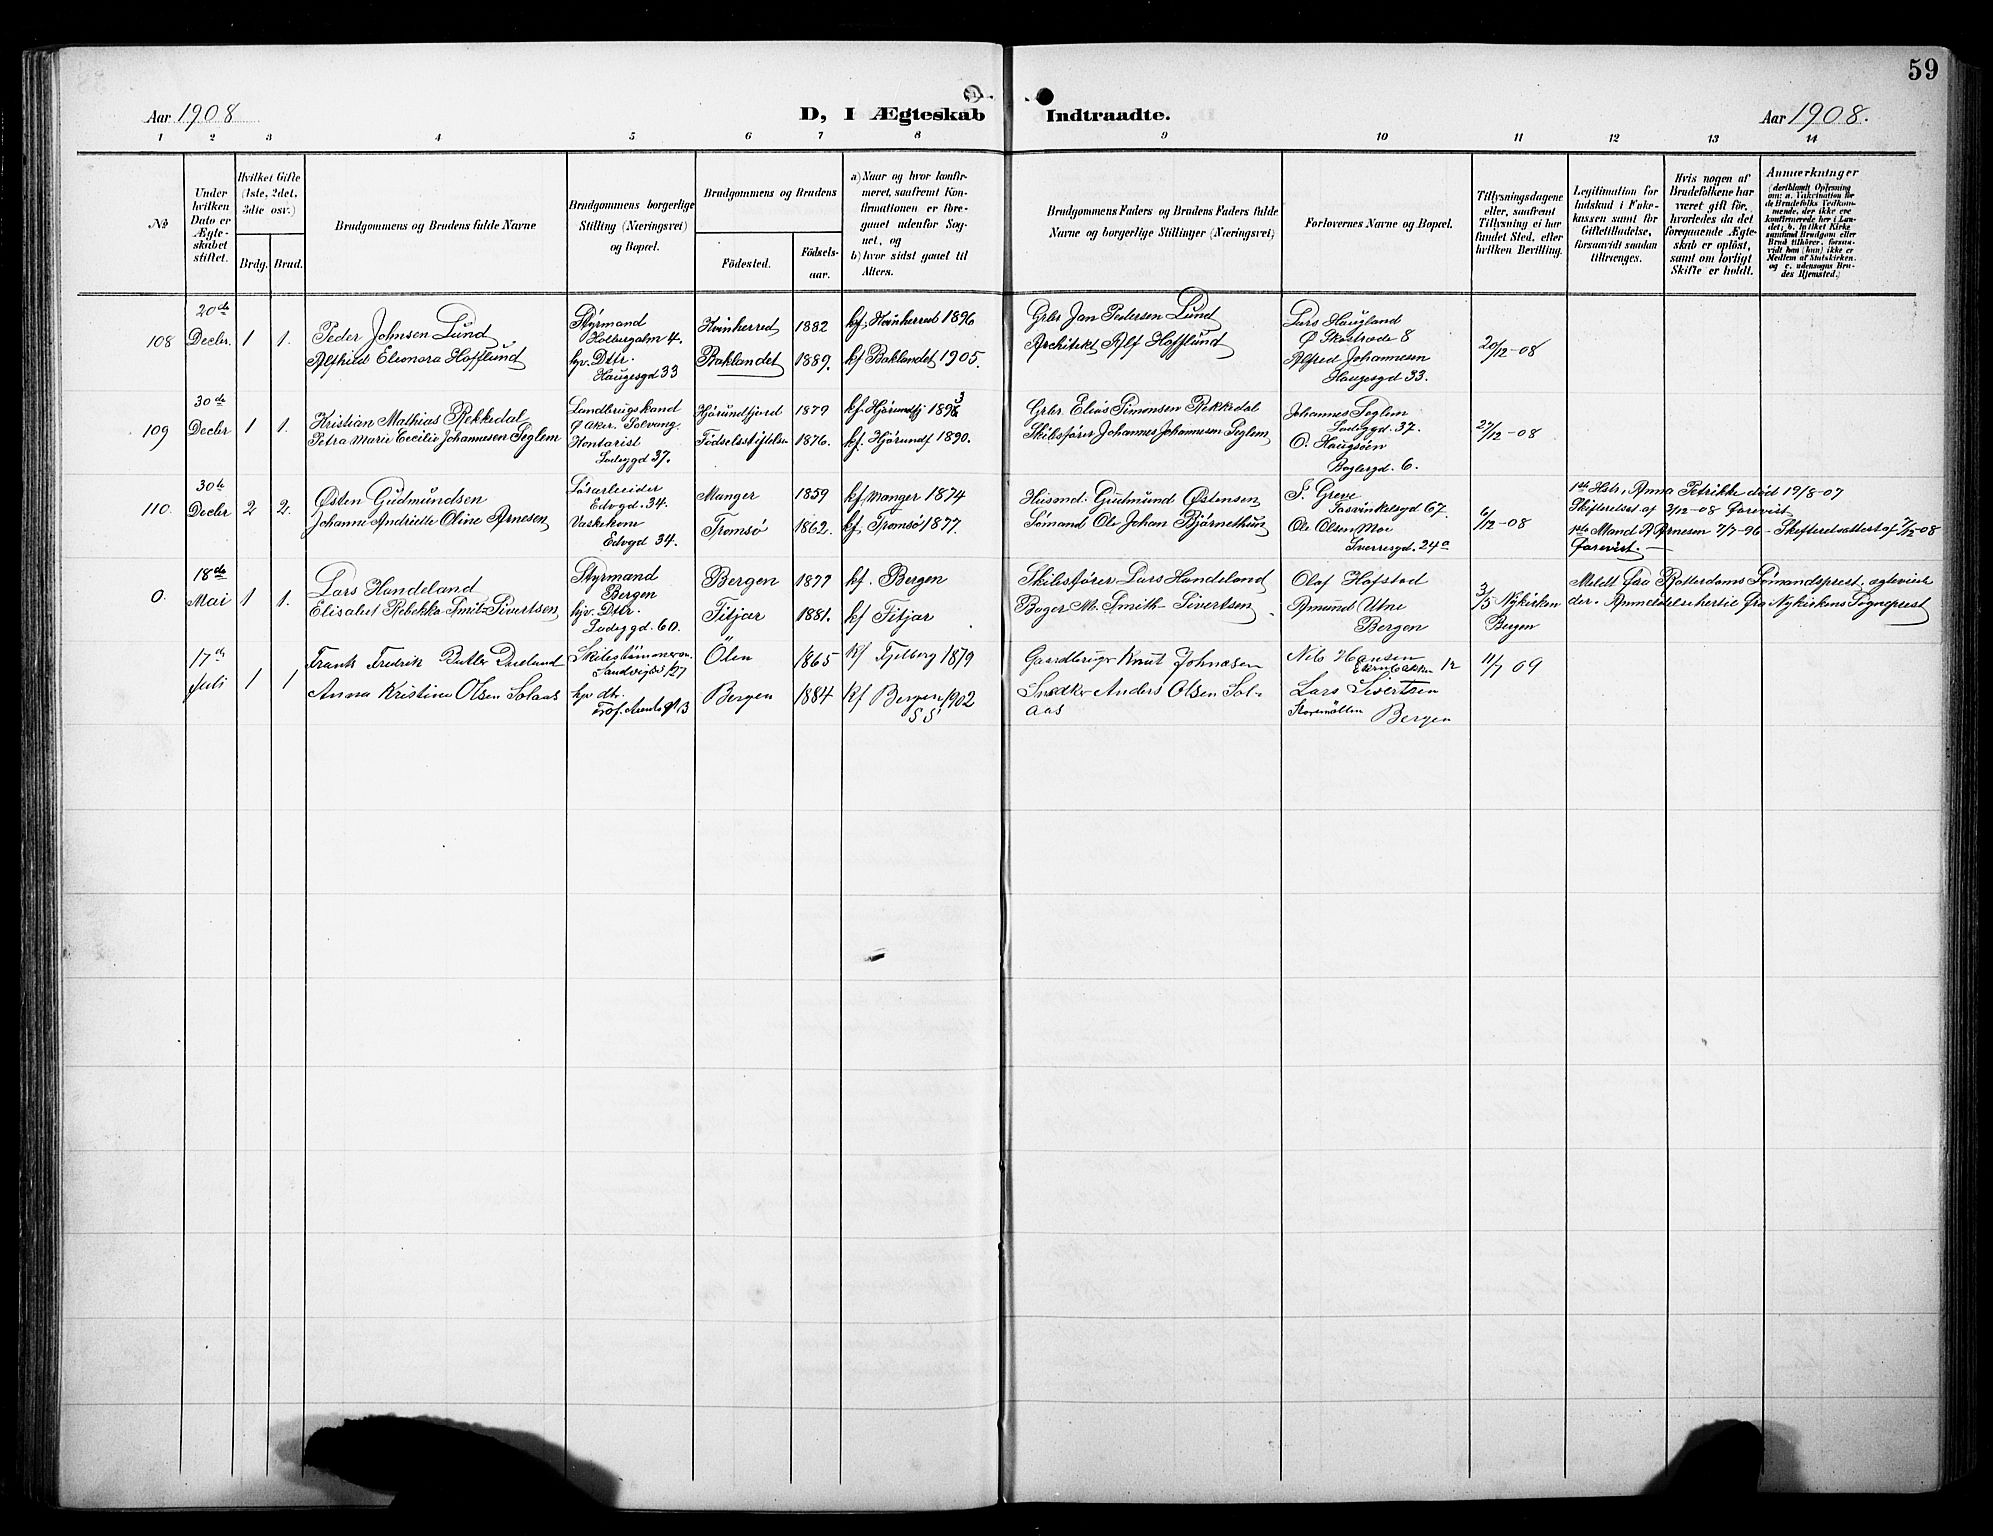 59
Aar 1908
D, I Ægteskab Indtraadte.
Aar 1908.
1 2 3 4 5 6 7 8 9 10 11 12 13 14
No
Under hvilken Dato er Ægteskabet stiftet.
Hvilket Gifte (1ste, 2det, 3die osv.)
Brdg. Brud.
Brudgommens og Brudens fulde Navne
Brudgommens borgerlige Stilling (Næringsvei) og Bopæl.
Brudgommens og Brudens
Fødested.
Fødselsaar.
a) Naar og hvor konfirmeret, saafremt Konfirmationen er foregaaet udenfor Sognet, og
b) hvor sidst gaaet til Alters.
Brudgommens Faders og Brudens Faders fulde Navne og borgerlige Stillinger (Næringsvei)
Forlovernes Navne og Bopæl.
Tillysningsdagene eller, saafremt Tillysning ei har fundet Sted, efter hvilken Bevilling.
Legitimation for Indskud i Enkekassen samt for Giftetilladelse, forsaavidt saadan tiltrænges.
Hvis nogen af Brudefolkene har været gift før, hvorledes da det foregaaende Ægteskab er opløst, samt om lovligt Skifte er holdt.
Anmærkninger
108 20de Decbr. 1 1.
Peder Johnsen Lund
Styrmand Holbergalm 4.
Kvinherred 1882 kf. Kvinherred 1896
Grbr Jan Pedersen Lund
Lars Haugland
Alfhild Eleonora Hofflund
hjv. Dttr. Haugesgd 33
Baklandet 1889. kf Baklandet 1905.
Architekt Alf Hofflund
Alfred Johannesen Haugesgd 33.
20/12-08
109 30de Decbr 1 1.
Kristian Mathias Rekkedal
Landbrugskand Ø Aker. Solvang
Hjørundfjord 1879 kf. Hjørundfj 1893
Grbr. Elias Simonsen Rekkedal
Johannes Seglem Ladeggd. 37.
Petra Marie Cecilie Johannesen Seglem
Kontorist Ladeggd 37.
Fødselsstiftelsen 1876. kf. Hjørundf 1890.
Skibsfører Johannes Johannesen Seglem
O. Haugsøen
27/12-08
110. 30te Decbr 2 2.
Østen Gudmundsen
Løsarbeider Edvgd. 34.
Manger 1859 kf Manger 1874
Husmd. Gudmund Østensen
S. Greve 67.
Johanne Andriette Oline Arnesen
Vaskekone Edvgd 34.
Tromsø 1862. kf. Tromsø 1877.
Sømand Ole Johan Bjørnethun
Ole Olsen Moe Sverresgd. 24a
6/12-08
1ste Hstr. Anna Petrikke død 19/8-07
Skifterelsst af 3/12-08 forevist
1ste Mand P. Arnesen 7/7-96 - Skifteretsattest af 7/12-08
forevist. —
0. 18de Mai 1 1.
Lars Handeland
Styrmand Bergen
Bergen 1877 kf. Bergen
Skibsfører Lars Handeland
Olaf Hofstad
Elisabet Rebekka Smit-Sivertsen
hjv. Dttr. Ladeggd. 60.
Fitjar 1881. kf Fitjar
Bager M. Smith-Sivertsen
Amund Utne Bergen
3/5 Nykirken Bergen
Meldt fra Rotterdams Sømandsprest, agtevieder. Anmeldelse hertil fra Nykirkens Sogneprest
17de Juli 1 1
Frants Fredrik Butler
Ölen 1865 kf Fjelberg 1879
Gaardbruger Knut Johnasen
Nils Hansen 12
Anna Kristine Olsen Solaas
hjv dtr.
Bergen 1884 kf Bergen 1902
Snedker Anders Olsen Solaas
Lars Sivertsen Storemöllen Bergen
11/7 09